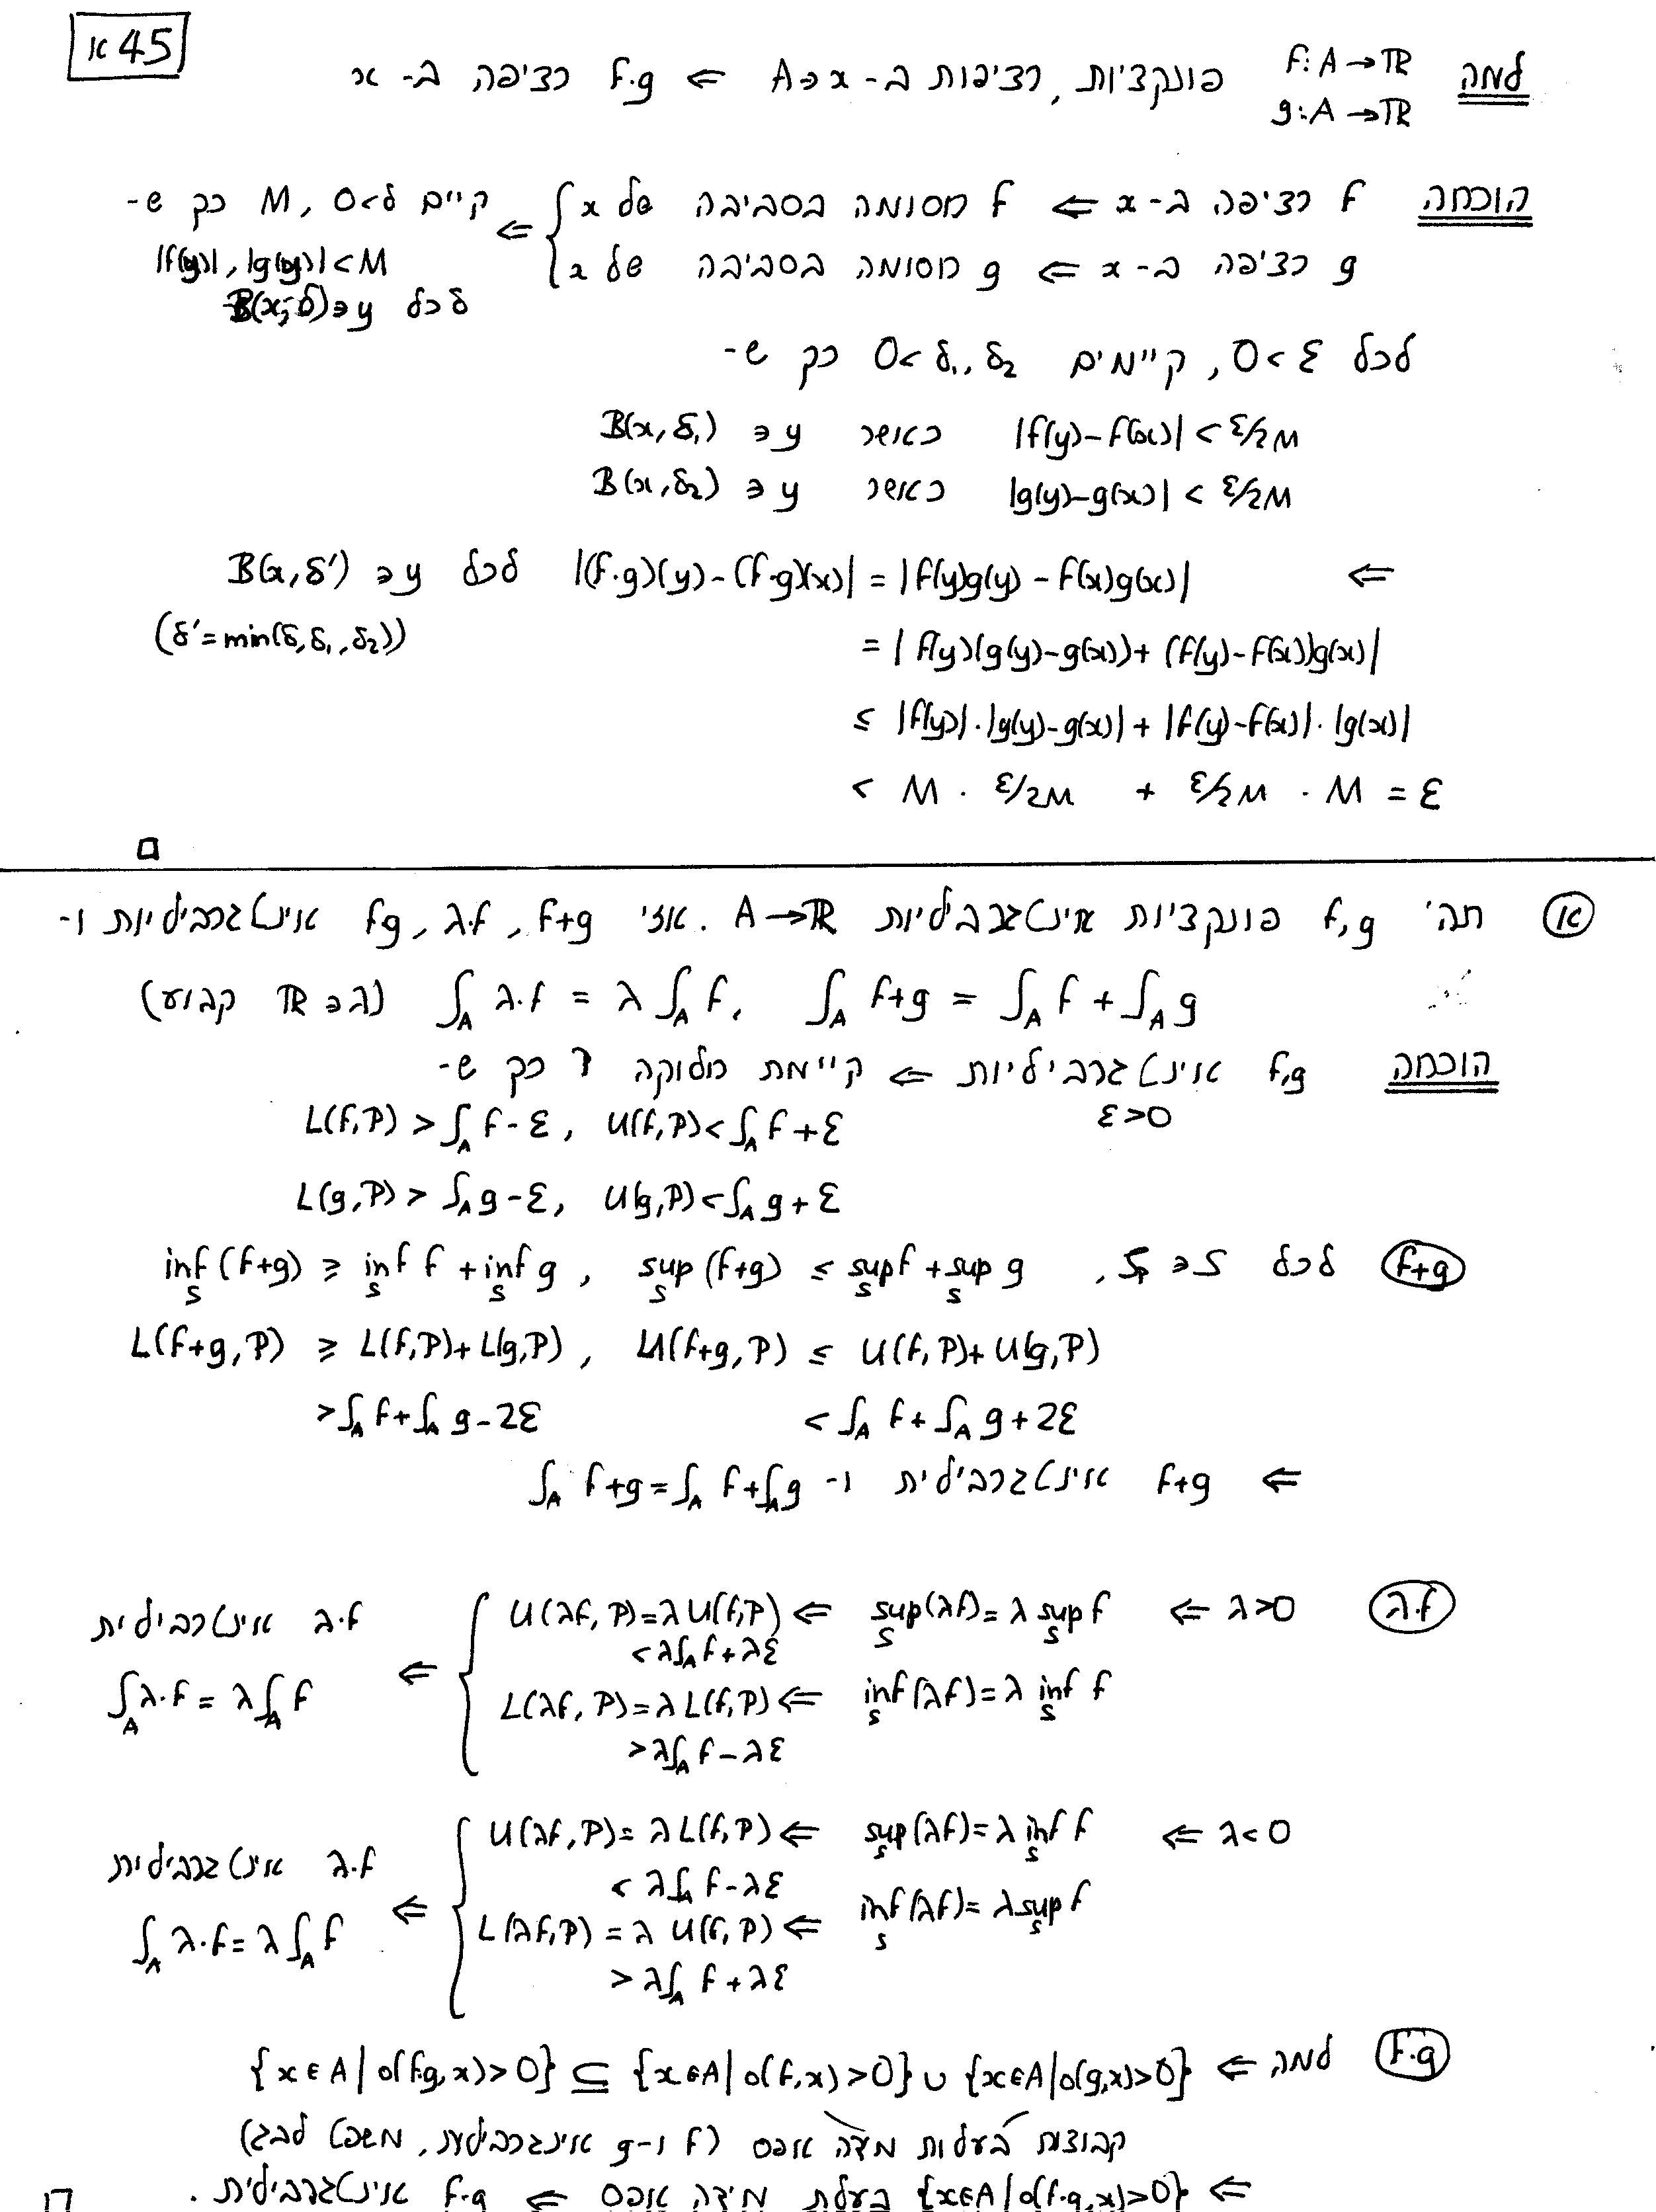 45א
למה f: A→ℝ פונקציות, רציפות ב- A∍x ⇐ f·g רציפה ב- x
g: A→ℝ
הוכחה f רציפה ב- x ⇐ f חסומה בסביבה של x ⇐ קיים 0<δ, M כך ש-
g רציפה ב- x ⇐ g חסומה בסביבה של x |f(y)|, |g(y)|<M
לכל B(x;δ)∍y
לכל 0<ε, קיימים 0<δ₁,δ₂ כך ש-
|f(y)-f(x)| < ε/2M כאשר B(x,δ₁) ∍ y
|g(y)-g(x)| < ε/2M כאשר B(x,δ₂) ∍ y
⇐ |(f·g)(y)-(f·g)(x)| = |f(y)g(y) - f(x)g(x)| לכל B(x,δ') ∍ y
= |f(y)(g(y)-g(x))+(f(y)-f(x))g(x)| (δ'=min(δ,δ₁,δ₂))
≤ |f(y)|·|g(y)-g(x)| + |f(y)-f(x)|·|g(x)|
< M · ε/2M + ε/2M · M = ε
□
(א) תהי f,g פונקציות אינטגרביליות A→ℝ. אזי f+g, λ·f, fg אינטגרביליות ו-
∫_A λ·f = λ∫_A f, ∫_A f+g = ∫_A f + ∫_A g (ℝ∍λ קבוע)
הוכחה f,g אינטגרביליות ⇐ קיימת חלוקה P כך ש-
ε>0
L(f,P) > ∫_A f-ε, U(f,P) < ∫_A f+ε
L(g,P) > ∫_A g-ε, U(g,P) < ∫_A g+ε
(f+g) לכל S_P ∍ S, inf_S (f+g) ≥ inf_S f + inf_S g, sup_S (f+g) ≤ sup_S f + sup_S g
L(f+g,P) ≥ L(f,P)+L(g,P), U(f+g,P) ≤ U(f,P)+U(g,P)
>∫_A f+∫_A g-2ε < ∫_A f+∫_A g+2ε
⇐ f+g אינטגרבילית ו- ∫_A f+g=∫_A f+∫_A g
(λ·f) λ>0 ⇐ sup_S(λf)=λ sup_S f ⇐ U(λf,P)=λU(f,P) ⇐ λ·f אינטגרבילית
<λ∫_A f+λε
inf_S(λf)=λ inf_S f ⇐ L(λf,P)=λL(f,P) ∫_A λ·f=λ∫_A f
>λ∫_A f-λε
λ<0 ⇐ sup_S(λf)=λ inf_S f ⇐ U(λf,P)=λL(f,P) ⇐ λ·f אינטגרבילית
< λ∫_A f-λε
inf_S(λf)=λ sup_S f ⇐ L(λf,P)=λ U(f,P) ∫_A λ·f=λ∫_A f
>λ∫_A f+λε
(f·g) למה ⇐ {x∈A | o(f·g,x)>0} ⊆ {x∈A | o(f,x)>0} ∪ {x∈A | o(g,x)>0}
קבוצות בעלות מידה אפס (f ו-g אינטגרביליות, משפט לבג)
⇐ {x∈A | o(f·g,x)>0} בעלת מידה אפס ⇐ f·g אינטגרבילית. □